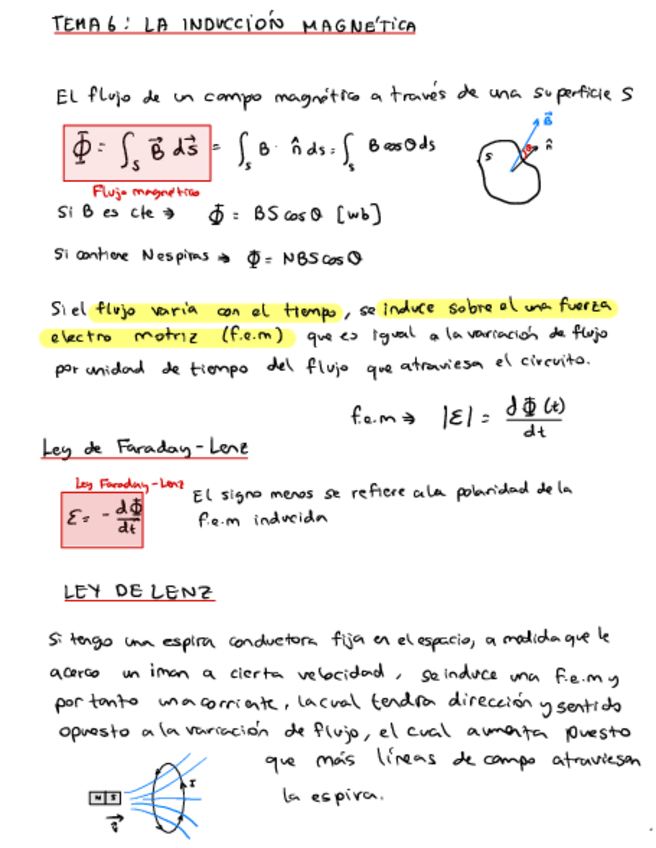 TEMA 6: LA INDUCCIÓN MAGNÉTICA
El flujo de un campo magnético a través de una superficie S
Φ = ∫s B⃗ ds⃗ = ∫s B · n̂ ds = ∫s B cos θ ds
B⃗
n̂
θ
S
Flujo magnético
Si B es cte → Φ = BS cos θ [wb]
Si contiene N espiras → Φ = NBS cos θ
Si el flujo varía con el tiempo, se induce sobre el una fuerza
electro motriz (f.e.m) que es igual a la variación de flujo
por unidad de tiempo del flujo que atraviesa el circuito.
f.e.m → |ε| = dΦ(t)/dt
Ley de Faraday-Lenz
Ley Faraday-Lenz
ε = - dΦ/dt
El signo menos se refiere a la polaridad de la
f.e.m inducida
LEY DE LENZ
Si tengo una espira conductora fija en el espacio, a medida que le
acerco un iman a cierta velocidad, se induce una f.e.m y
por tanto una corriente, la cual tendra dirección y sentido
opuesto a la variación de flujo, el cual aumenta puesto
que más líneas de campo atraviesan
la espira.
N S
I
v⃗